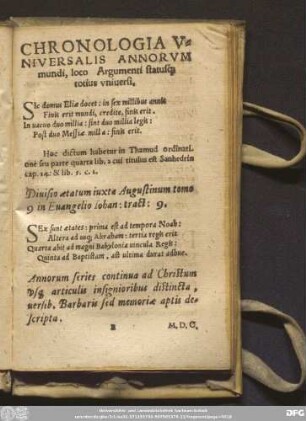 CHRONOLOGIA V-
NIVERSALIS ANNORVM
mundi, loco Argumenti statusq́;
totius vniuersi.
SIc domus Eliæ docet: in sex millibus annis
Finis erit mundi, credite, finis erit.
In uacuo duo millia: sint duo millia legis:
Post duo Messiæ millia: finis erit.
Hoc dictum habetur in Thamud ordinati-
one seu parte quarta lib. 2 cui titulus est Sanhedrin
cap. 14: & lib. 1. c. 1.
Diuisio ætatum iuxta Augustinum tomo
9 in Euangelio Iohan: tract: 9.
SEx sunt ætates: prima est ad tempora Noah:
Altera ad usq; Abraham: tertia regis erit.
Quarta abit ad magni Babylonia uincula Regis:
Quinta ad Baptistam, ast ultima durat adhuc.
Annorum series continua ad Christum
vsq; articulis insignioribus distincta,
versib. Barbaris sed memoriæ aptis de-
scripta.
B M. D. C.
DFG